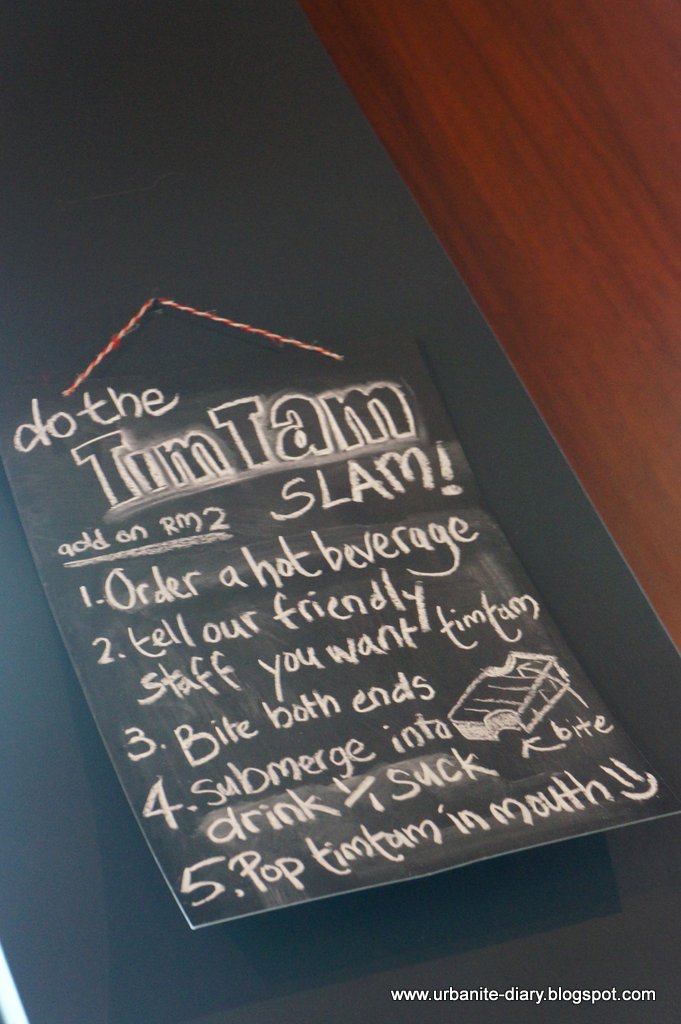 do the
TimTam
SLAM!
add on RM2
1. Order a hot beverage
2. tell our friendly
staff you want timtam
3. Bite both ends
4. submerge into
bite
drink & suck
5. Pop timtam in mouth :)
www.urbanite-diary.blogspot.com